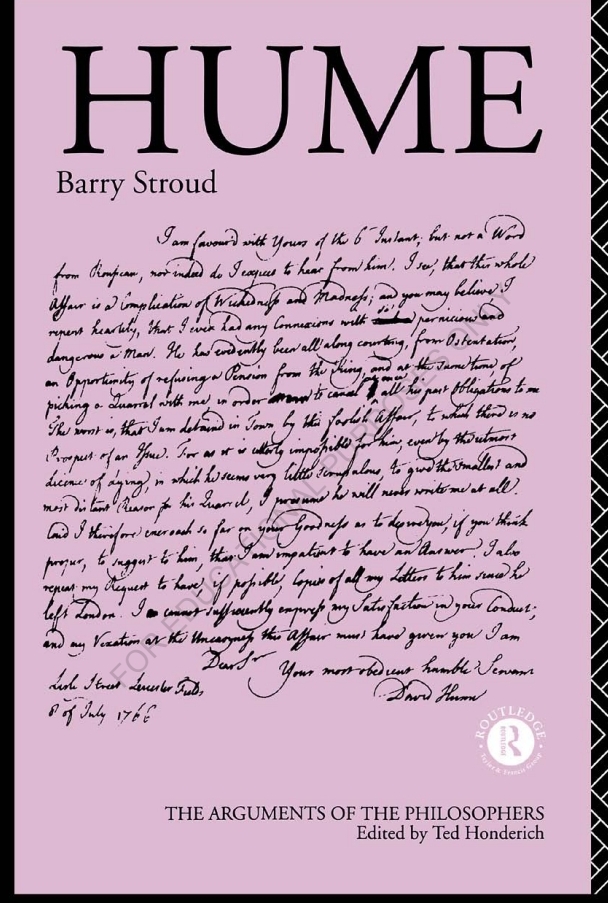 HUME
Barry Stroud
I am favour'd with Yours of the 6 Instant; but not a Word
from Rousseau, nor indeed do I expect to hear from him. I see, that this whole
Affair is a Complication of Wickedness and Madness; and you may believe I
repent heartily, that I ever had any Connexions with so pernicious and
dangerous a Man. He has evidently been all along courting, from Ostentation,
an Opportunity of refusing a Pension from the King, and at the same time of
picking a Quarrel with me in order to cancel all his past Obligations to me
The worst is, that I am detained in Town by this foolish Affair, to which there is no
Prospect of an Issue. For as it is utterly impossible for him, even by the utmost
Licence of Lying, in which he seems very little scrupulous, to give the smallest and
most distant Reason for his Quarrel, I presume he will never write me at all.
Coud I therefore encroach so far on your Goodness as to desire you, if you think
proper, to suggest to him, that I am impatient to have an Answer. I also
repeat my Request to have, if possible, Copies of all my Letters to him since he
left London. I cannot sufficiently express my Satisfaction in your Conduct;
and my Vexation at the Uneasyness this Affair must have given you I am
Dear Sir
Your most obedient humble Servant
David Hume
Lisle Street Leicester Fields
8 of July 1766
FOR EDUCATIONAL PURPOSES ONLY
ROUTLEDGE
ROUTLEDGE
R
Taylor & Francis Group
THE ARGUMENTS OF THE PHILOSOPHERS
Edited by Ted Honderich